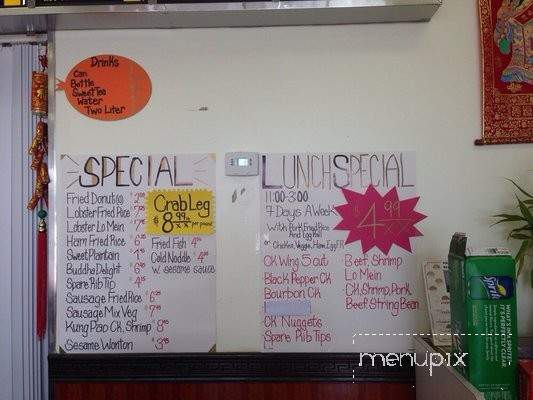 Drinks
Can
Bottle
Sweet Tea
Water
Two Liter
SPECIAL
Fried Donut
Lobster Fried Rice
Lobster Lo Mein
Ham Fried Rice
Sweet Plantain
Buddha Delight
Spare Rib Tip
Sausage Fried Rice
Sausage Mix Veg
Kung Pao CK, Shrimp
Sesame Wonton
Crab Leg
$8.99
per pound
Fried Fish
Cold Noddle
w. sesame sauce
LUNCH SPECIAL
11:00-3:00
7 Days A Week
With Pork Fried Rice
And Egg Roll
or Chicken, Veggie, Ham, Egg F.R
$4.99
CK Wing 5 cut
Black Pepper CK
Bourbon CK
CK Nuggets
Spare Rib Tips
Beef, Shrimp
Lo Mein
CK, Shrimp, Pork
Beef String Bean
Sprite
WHAT'S IN SPRITE?
IT'S PERFECTLY
CLEAR
menupix